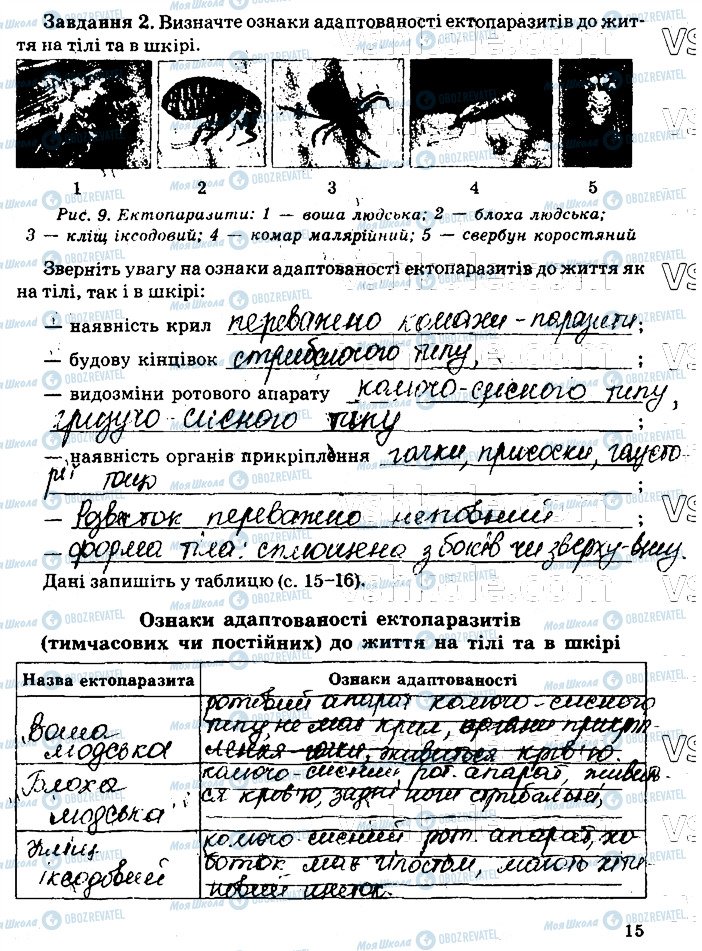 Завдання 2. Визначте ознаки адаптованості ектопаразитів до жит-
тя на тілі та в шкірі.
1 2 3 4 5
Рис. 9. Ектопаразити: 1 — воша людська; 2 — блоха людська;
3 — кліщ іксодовий; 4 — комар малярійний; 5 — свербун коростяний
Зверніть увагу на ознаки адаптованості ектопаразитів до життя як
на тілі, так і в шкірі:
— наявність крил переважно комахи-паразити;
— будову кінцівок стрибального типу, ;
— видозміни ротового апарату колючо-сисного типу,
гризучо-сисного типу ;
— наявність органів прикріплення гачки, присоски, гаусто-
рії тощо ;
— Розвиток переважно неповний ;
— форма тіла: сплющена з боків чи зверху-вниз.
Дані запишіть у таблицю (с. 15–16).
Ознаки адаптованості ектопаразитів
(тимчасових чи постійних) до життя на тілі та в шкірі
Назва ектопаразита Ознаки адаптованості
Воша людська
ротовий апарат колючо-сисного
типу, не має крил, органи прикріп-
лення , живиться кров'ю.
Блоха людська
колючо-сисний рот. апарат, живить-
ся кров'ю, задні ноги стрибальні,
Кліщ іксодовий
колючо-сисний рот. апарат, хо-
боток має гіпостом, мають хіти-
новий щиток.
15
МояШкола OBOZREVATEL